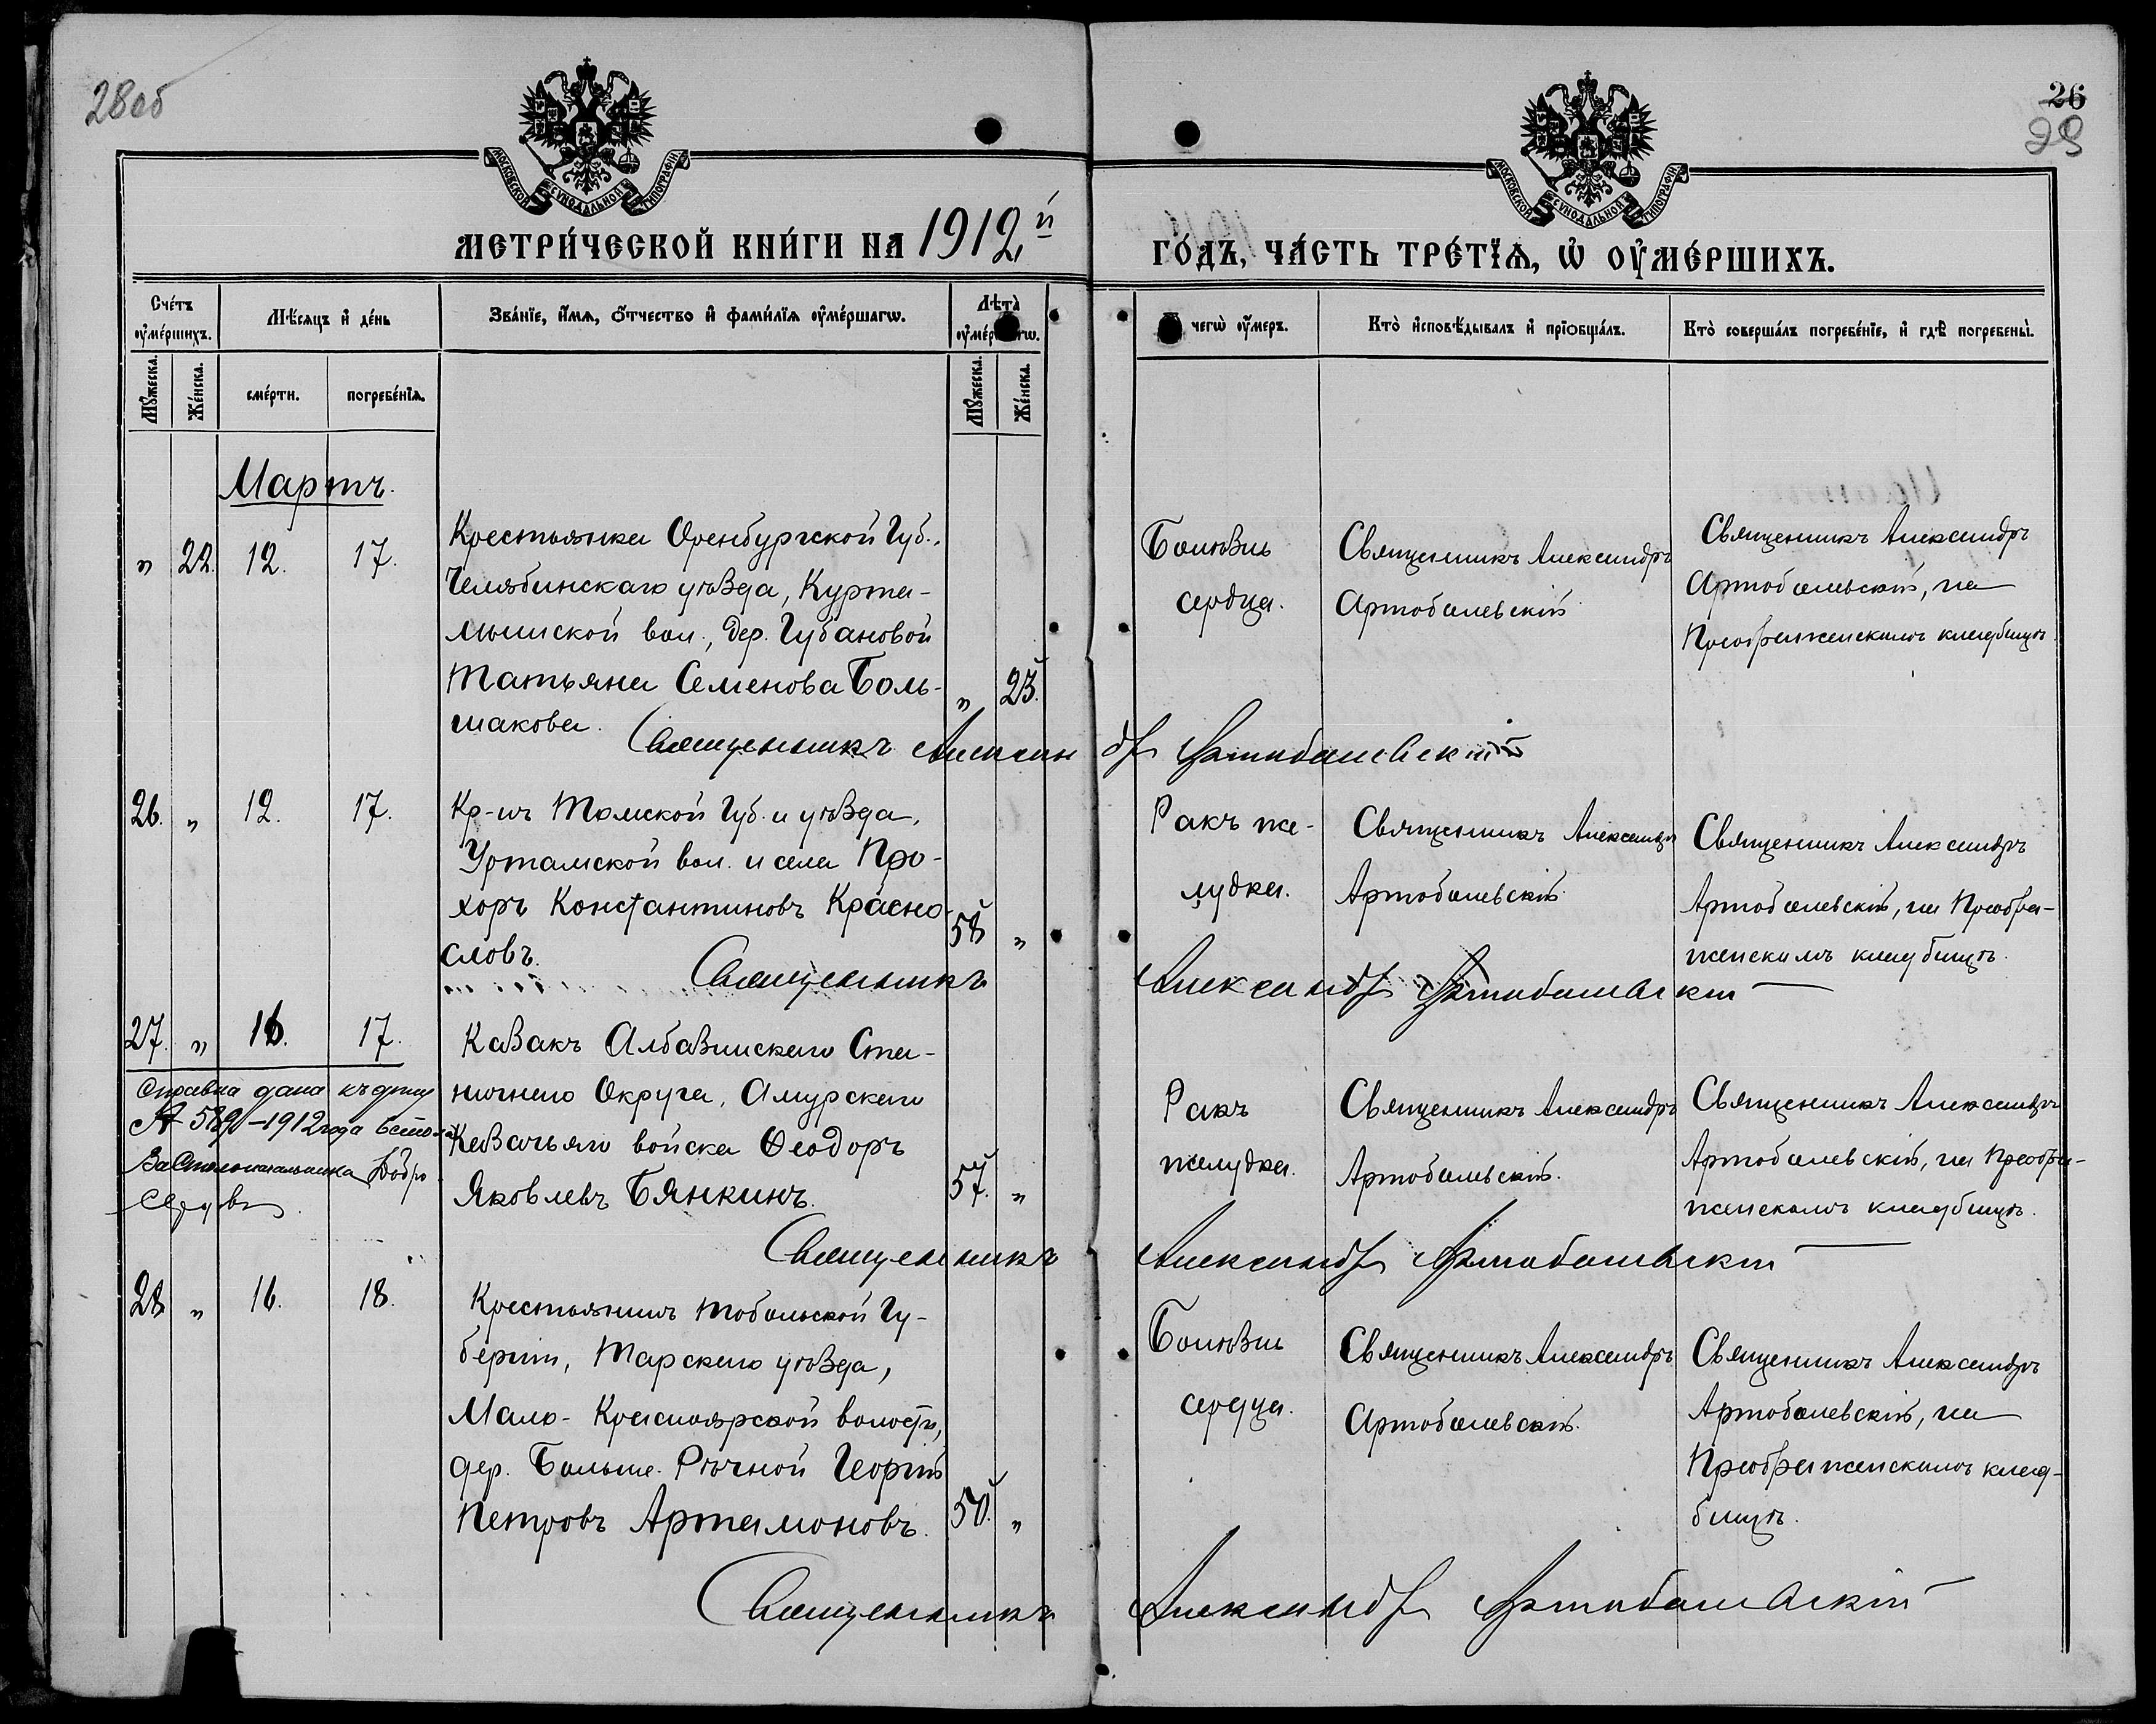 28об
26
28
МОСКОВСКОЙ СѴНОДАЛЬНОЙ ТИПОГРАФІИ
МОСКОВСКОЙ СѴНОДАЛЬНОЙ ТИПОГРАФІИ
МЕТРИ́ЧЕСКОЙ КНИ́ГИ НА 1912й
ГО́ДЪ, ЧА́СТЬ ТРЕ́ТЇѦ, Ѡ҆ ОУ҆МЕ́РШИХЪ.
Сче́тъ оу҆ме́ршихъ.
Мѣ́сѧцъ и҆ де́нь
Зва́нїе, и҆́мѧ, ѻ҆́тчество и҆ фами́лїѧ оу҆ме́ршагѡ.
Лѣ́та̀ оу҆ме́ршагѡ.
чегѡ̀ оу҆́меръ.
Кто̀ и҆сповѣ́дывалъ и҆ прїѻбща́лъ.
Кто̀ соверша́лъ погребе́нїе, и҆ гдѣ̀ погребены̀.
Мꙋ́жеска.
Же́нска.
сме́рти.
погребе́нїѧ.
Мꙋ́жеска.
Же́нска.
Мартъ.
" 22. 12. 17.
Крестьянка Оренбургской Губ.,
Челябинскаго уѣзда, Курта-
мышской вол., дер. Губановой
Татьяна Семенова Боль-
шакова.
" 23.
Болѣзнь
сердца.
Священникъ Александръ
Артоболевскій
Священникъ Александръ
Артоболевскій, на
Преображенскомъ кладбищѣ
Священникъ Александръ Артоболевскій
26. " 12. 17.
Кр-нъ Томской Губ. и уѣзда,
Уртамской вол. и села Про-
хоръ Константиновъ Красно-
словъ.
58 "
Ракъ же-
лудка.
Священникъ Александръ
Артоболевскій
Священникъ Александръ
Артоболевскій, на Преобра-
женскомъ кладбищѣ.
Священникъ Александръ Артоболевскій
27. " 16. 17.
Справка дана къ дѣлу
№ 5892 – 1912 года 6 стола
За Столоначальника Добро
Казакъ Албазинскаго Ста-
ничнаго Округа, Амурскаго
Казачьяго войска Ѳеодоръ
Яковлевъ Бянкинъ.
57. "
Ракъ
желудка.
Священникъ Александръ
Артоболевскій.
Священникъ Александръ
Артоболевскій, на Преобра-
женскомъ кладбищѣ.
Священникъ Александръ Артоболевскій
28 " 16. 18.
Крестьянинъ Тобольской Гу-
берніи, Тарскаго уѣзда,
Мало-Красноярской волости,
дер. Больше-Рѣчной Георгій
Петровъ Артамоновъ.
50. "
Болѣзнь
сердца.
Священникъ Александръ
Артоболевскій.
Священникъ Александръ
Артоболевскій, на
Преображенскомъ клад-
бищѣ.
Священникъ Александръ Артоболевскій